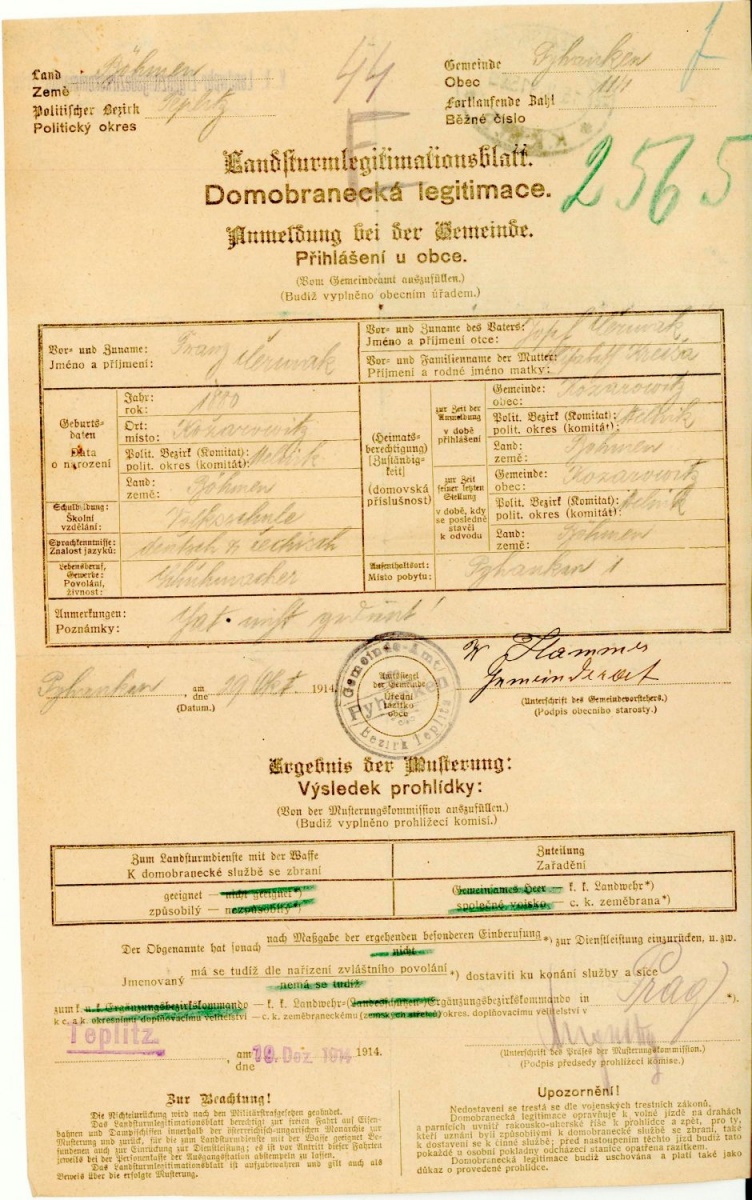 Land Böhmen
Země
Politischer Bezirk Teplitz
Politický okres
44
E
Gemeinde Pyhanken
Obec
Fortlaufende Zahl
Běžné číslo
2565
Landsturmlegitimationsblatt.
Domobranecká legitimace.
Anmeldung bei der Gemeinde.
Přihlášení u obce.
(Vom Gemeindeamt auszufüllen.)
(Budiž vyplněno obecním úřadem.)
Vor- und Zuname: Franz Čermak
Jméno a příjmení:
Vor- und Zuname des Vaters: Josef Čermak
Jméno a příjmení otce:
Vor- und Familienname der Mutter:
Příjmení a rodné jméno matky:
Geburtsdaten
Data o narození
Jahr: 1880
rok:
Ort: Kozarowitz
místo:
Polit. Bezirk (Komitat): Melnik
polit. okres (komitát):
Land: Böhmen
země:
(Heimatsberechtigung (Zuständigkeit)
(domovská příslušnost)
zur Zeit der Anmeldung
v době přihlášení
Gemeinde: Kozarowitz
obec:
Polit. Bezirk (Komitat) Melnik
polit. okres (komitát):
Land: Böhmen
země:
zur Zeit seiner letzten Stellung
v době, kdy se posledně stavěl k odvodu
Gemeinde: Kozarowitz
obec:
Polit. Bezirk (Komitat) Melnik
polit. okres (komitát):
Land: Böhmen
země:
Schulbildung: Volksschule
Školní vzdělání:
Sprachkenntnisse: deutsch u. čechisch
Znalost jazyků:
Lebensberuf, Gewerbe: Schuhmacher
Povolání, živnost:
Aufenthaltsort: Pyhanken 1
Místo pobytu:
Anmerkungen: Hat nicht gedient!
Poznámky:
Pyhanken am 19 Okt 1914
dne
(Datum.)
Gemeinde-Amt
Pyhanken
Bezirk Teplitz
Amtssiegel
der Gemeinde
Úřední
razítko
obce
W Hammer
(Unterschrift des Gemeindevorstehers.)
(Podpis obecního starosty.)
Ergebnis der Musterung:
Výsledek prohlídky:
(Von der Musterungskommission auszufüllen.)
(Budiž vyplněno prohlížecí komisí.)
Zum Landsturmdienste mit der Waffe
K domobranecké službě se zbraní
Zuteilung
Zařadění
geeignet — nicht geeignet*)
způsobilý — nezpůsobilý*)
Gemeinsames Heer — k. k. Landwehr*)
společné vojsko — c. k. zeměbrana*)
Der Obgenannte hat sonach nach Maßgabe der ergehenden besonderen Einberufung*) zur Dienstleistung einzurücken, u. zw.
nicht
Jmenovaný má se tudíž dle nařízení zvláštního povolání*) dostaviti ku konání služby a sice
nemá se tudíž
zum k. u. k. Ergänzungsbezirkskommando — k. k. Landwehr-(Landesschützen-)Ergänzungsbezirkskommando in Prag *).
k c. a k. okresnímu doplňovacímu velitelství — c. k. zeměbraneckému (zemských střelců) okres. doplňovacímu velitelství v
Teplitz.
am 19. Dez. 1914 1914.
dne
(Unterschrift des Präses der Musterungskommission.)
(Podpis předsedy prohlížecí komise.)
Zur Beachtung!
Die Nichteinrückung wird nach den Militärstrafgesetzen geahndet.
Das Landsturmlegitimationsblatt berechtigt zur freien Fahrt auf Eisenbahnen und Dampfschiffen innerhalb der österreichisch-ungarischen Monarchie zur
Musterung und zurück, für die zum Landsturmdienste mit der Waffe geeignet Befundenen auch zur Einrückung zur Dienstleistung; es ist vor Antritt dieser Fahrten
jeweils bei der Personenkasse der Ausgangsstation abstempeln zu lassen.
Das Landsturmlegitimationsblatt ist aufzubewahren und gilt auch als
Beweis über die erfolgte Musterung.
Upozornění!
Nedostavení se trestá se dle vojenských trestních zákonů.
Domobranecká legitimace opravňuje k volné jízdě na drahách
a parnících uvnitř rakousko-uherské říše k prohlídce a zpět, pro ty,
kteří uznáni byli způsobilými k domobranecké službě se zbraní, také
k dostavení se k činné službě; před nastoupením těchto jízd budiž tato
pokaždé u osobní pokladny odcházecí stanice opatřena razítkem.
Domobranecká legitimace budiž uschována a platí také jako
důkaz o provedené prohlídce.